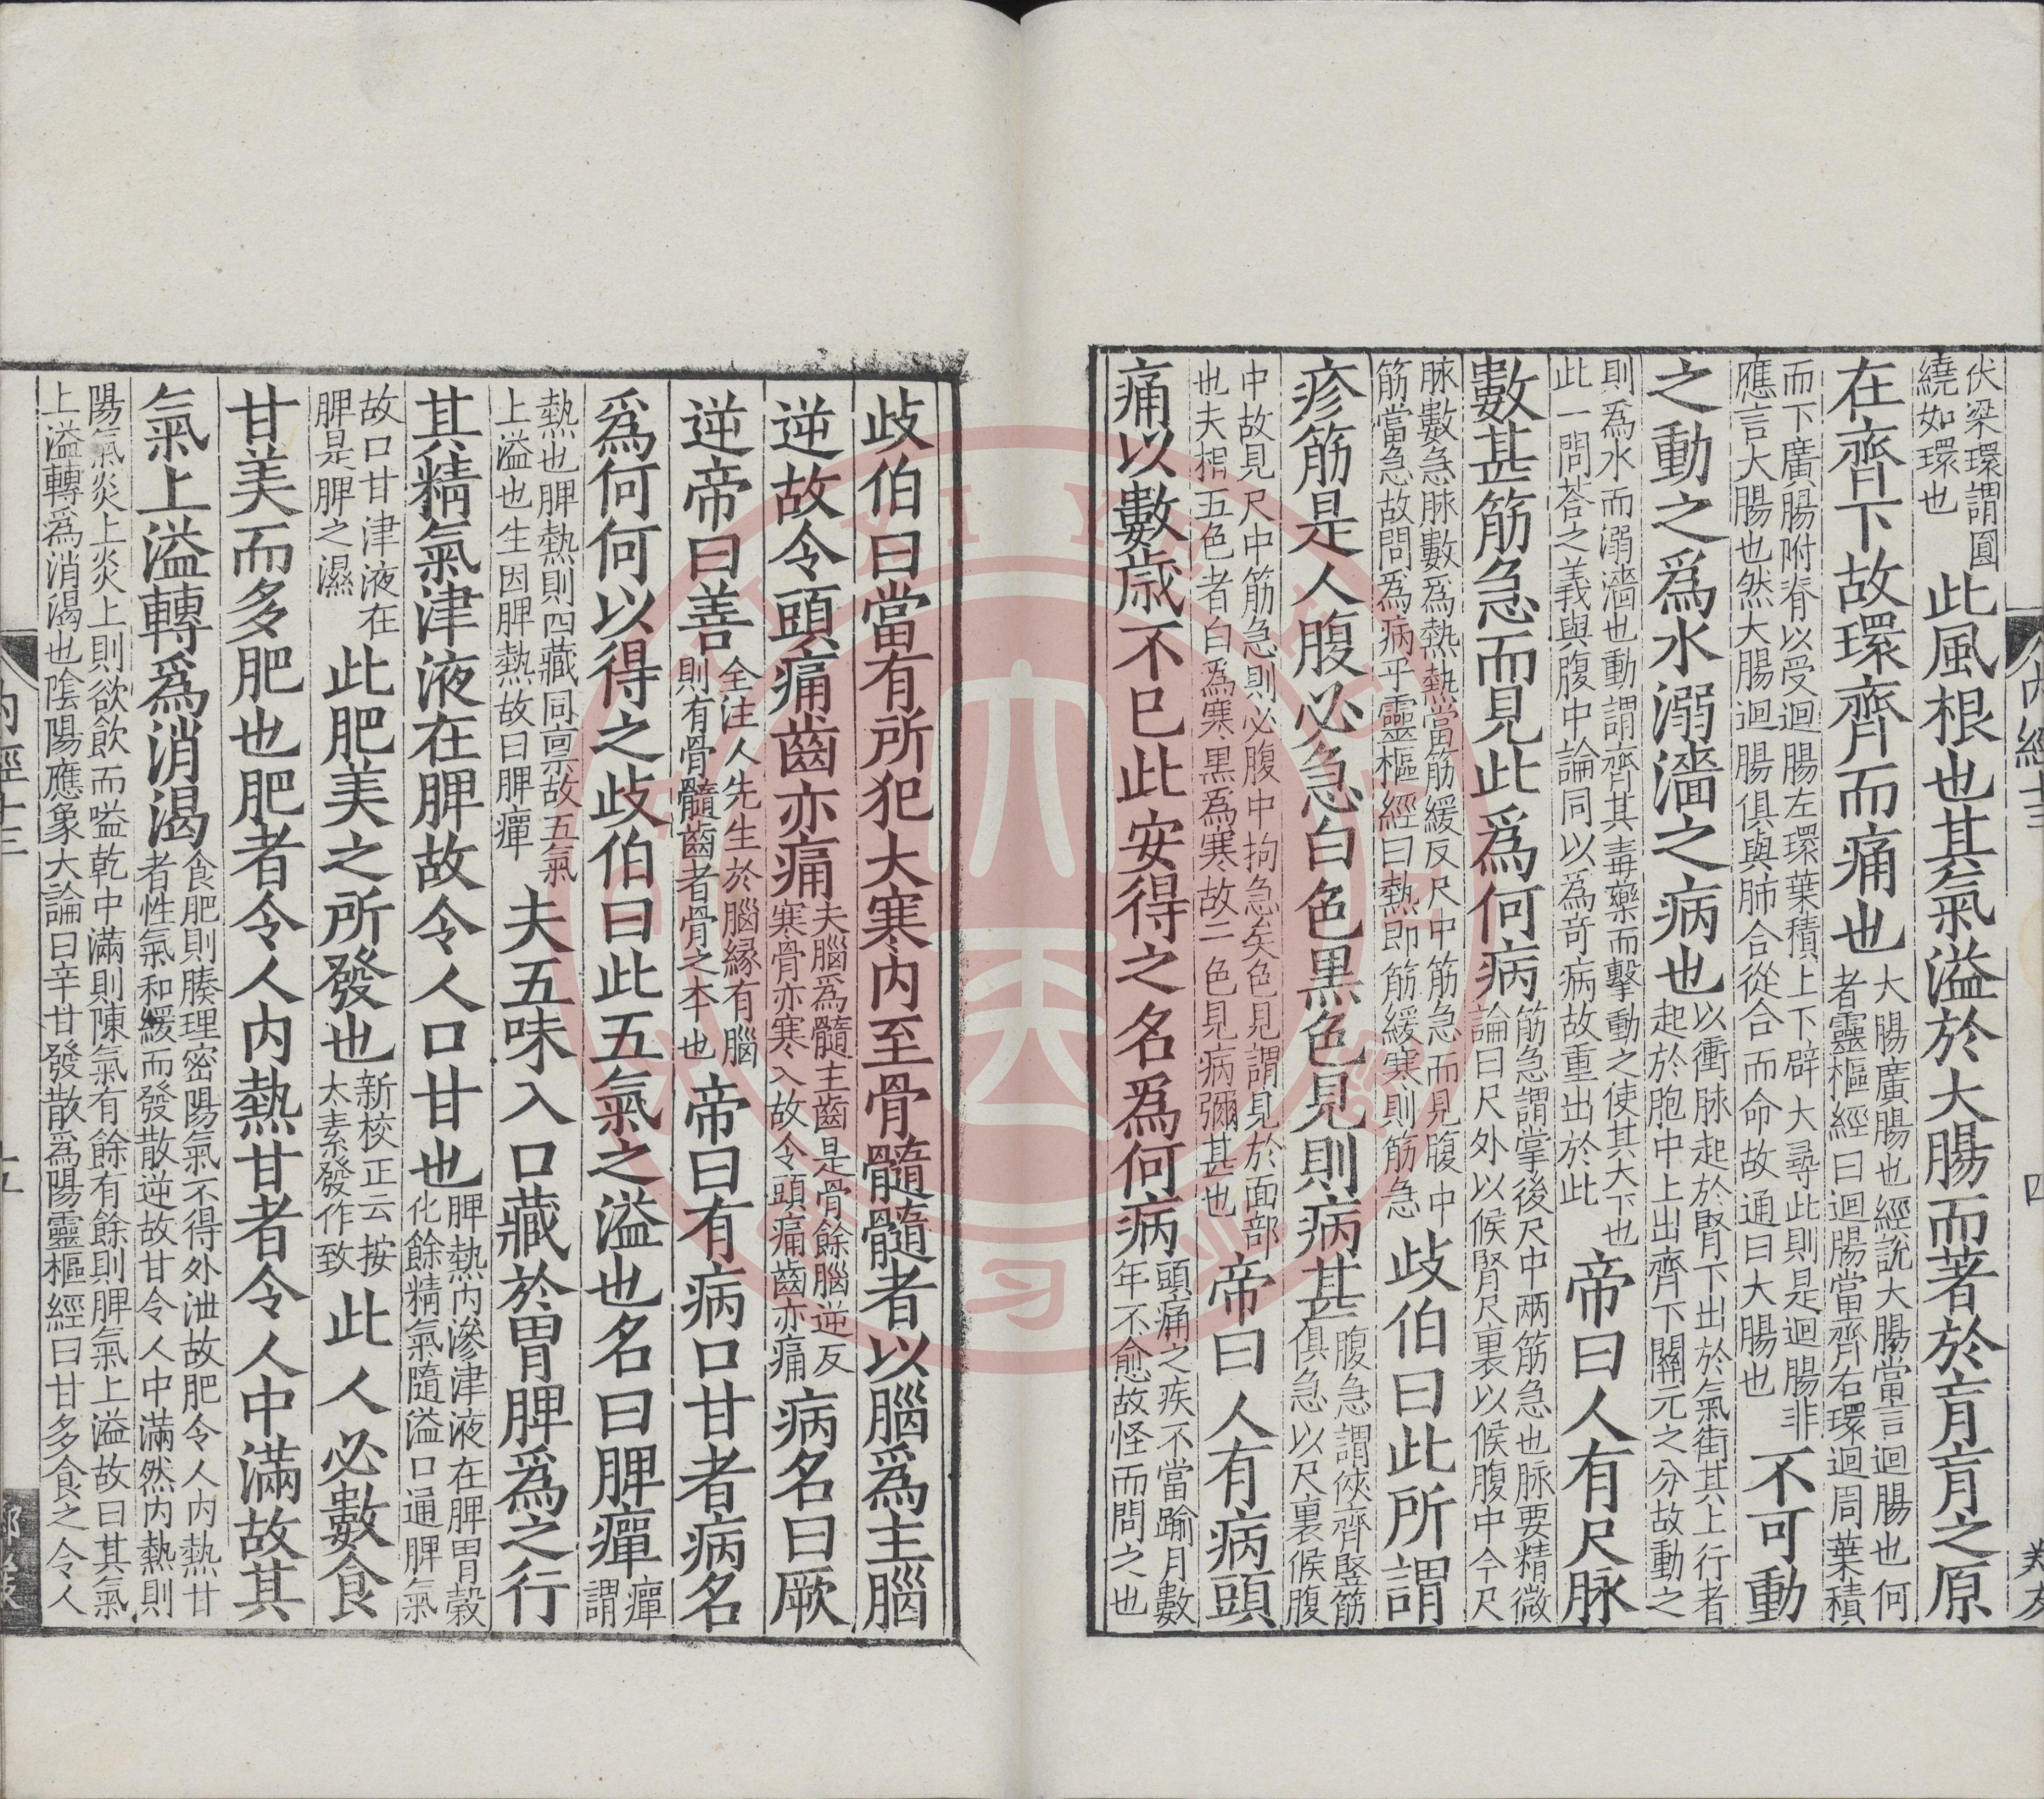 伏梁環謂圓
繞如環也
此風根也其氣溢於大腸而著於肓肓之原
在齊下故環齊而痛也
大腸廣腸也經說大腸當言迴腸也何
者靈樞經曰迴腸當齊右環迴周葉積
而下廣腸附脊以受迴腸左環葉積上下辟大尋此則是迴腸非
應言大腸也然大腸迴腸俱與肺合從合而命故通曰大腸也
不可動
之動之爲水溺濇之病也
以衝脉起於腎下出於氣街其上行者
起於胞中上出齊下關元之分故動之
則爲水而溺濇也動謂齊其毒藥而擊動之使其大下也
此一問荅之義與腹中論同以爲奇病故重出於此
帝曰人有尺脉
數甚筋急而見此爲何病
筋急謂掌後尺中兩筋急也脉要精微
論曰尺外以候腎尺裏以候腹中今尺
脉數急脉數爲熱熱當筋緩反尺中筋急而見腹中
筋當急故問爲病乎靈樞經曰熱即筋緩寒則筋急
歧伯曰此所謂
疹筋是人腹必急白色黑色見則病甚
腹急謂俠齊豎筋
俱急以尺裏候腹
中故見尺中筋急則必腹中拘急矣色見謂見於面部
也夫相五色者白爲寒黑爲寒故二色見病彌甚也
帝曰人有病頭
痛以數歲不已此安得之名爲何病
頭痛之疾不當踰月數
年不愈故怪而問之也
歧伯曰當有所犯大寒内至骨髓髓者以腦爲主腦
逆故令頭痛齒亦痛
夫腦爲髓主齒是骨餘腦逆反
寒骨亦寒入故令頭痛齒亦痛
病名曰厥
逆帝曰善
全注人先生於腦縁有腦
則有骨髓齒者骨之本也
帝曰有病口甘者病名
爲何何以得之歧伯曰此五氣之溢也名曰脾癉
癉
謂
熱也脾熱則四藏同禀故五氣
上溢也生因脾熱故曰脾癉
夫五味入口藏於胃脾爲之行
其精氣津液在脾故令人口甘也
脾熱内滲津液在脾胃穀
化餘精氣隨溢口通脾氣
故口甘津液在
脾是脾之濕
此肥美之所發也
新校正云按
太素發作致
此人必數食
甘美而多肥也肥者令人内熱甘者令人中滿故其
氣上溢轉爲消渴
食肥則腠理密陽氣不得外泄故肥令人内熱甘
者性氣和緩而發散逆故甘令人中滿然内熱則
陽氣炎上炎上則欲飲而嗌乾中滿則陳氣有餘有餘則脾氣上溢故曰其氣
上溢轉爲消渴也陰陽應象大論曰辛甘發散爲陽靈樞經曰甘多食之令人